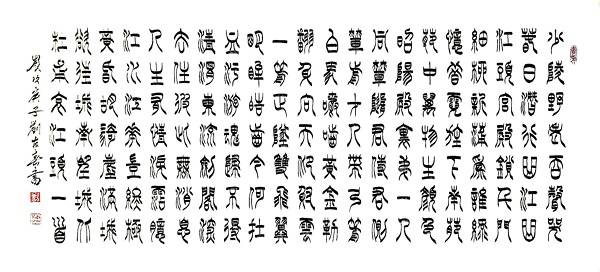 少陵野老吞聲哭
春日潛行曲江曲
江頭宮殿鎖千門
細柳新蒲為誰綠
憶昔霓旌下南苑
苑中萬物生顏色
昭陽殿裏第一人
同輦隨君侍君側
輦前才人帶弓箭
白馬嚼齧黃金勒
翻身向天仰射雲
一箭正墜雙飛翼
明眸皓齒今何在
血污遊魂歸不得
清渭東流劍閣深
去住彼此無消息
人生有情淚沾臆
江水江花豈終極
黃昏胡騎塵滿城
欲往城南望城北
杜甫哀江頭一首
歲次庚子劉書